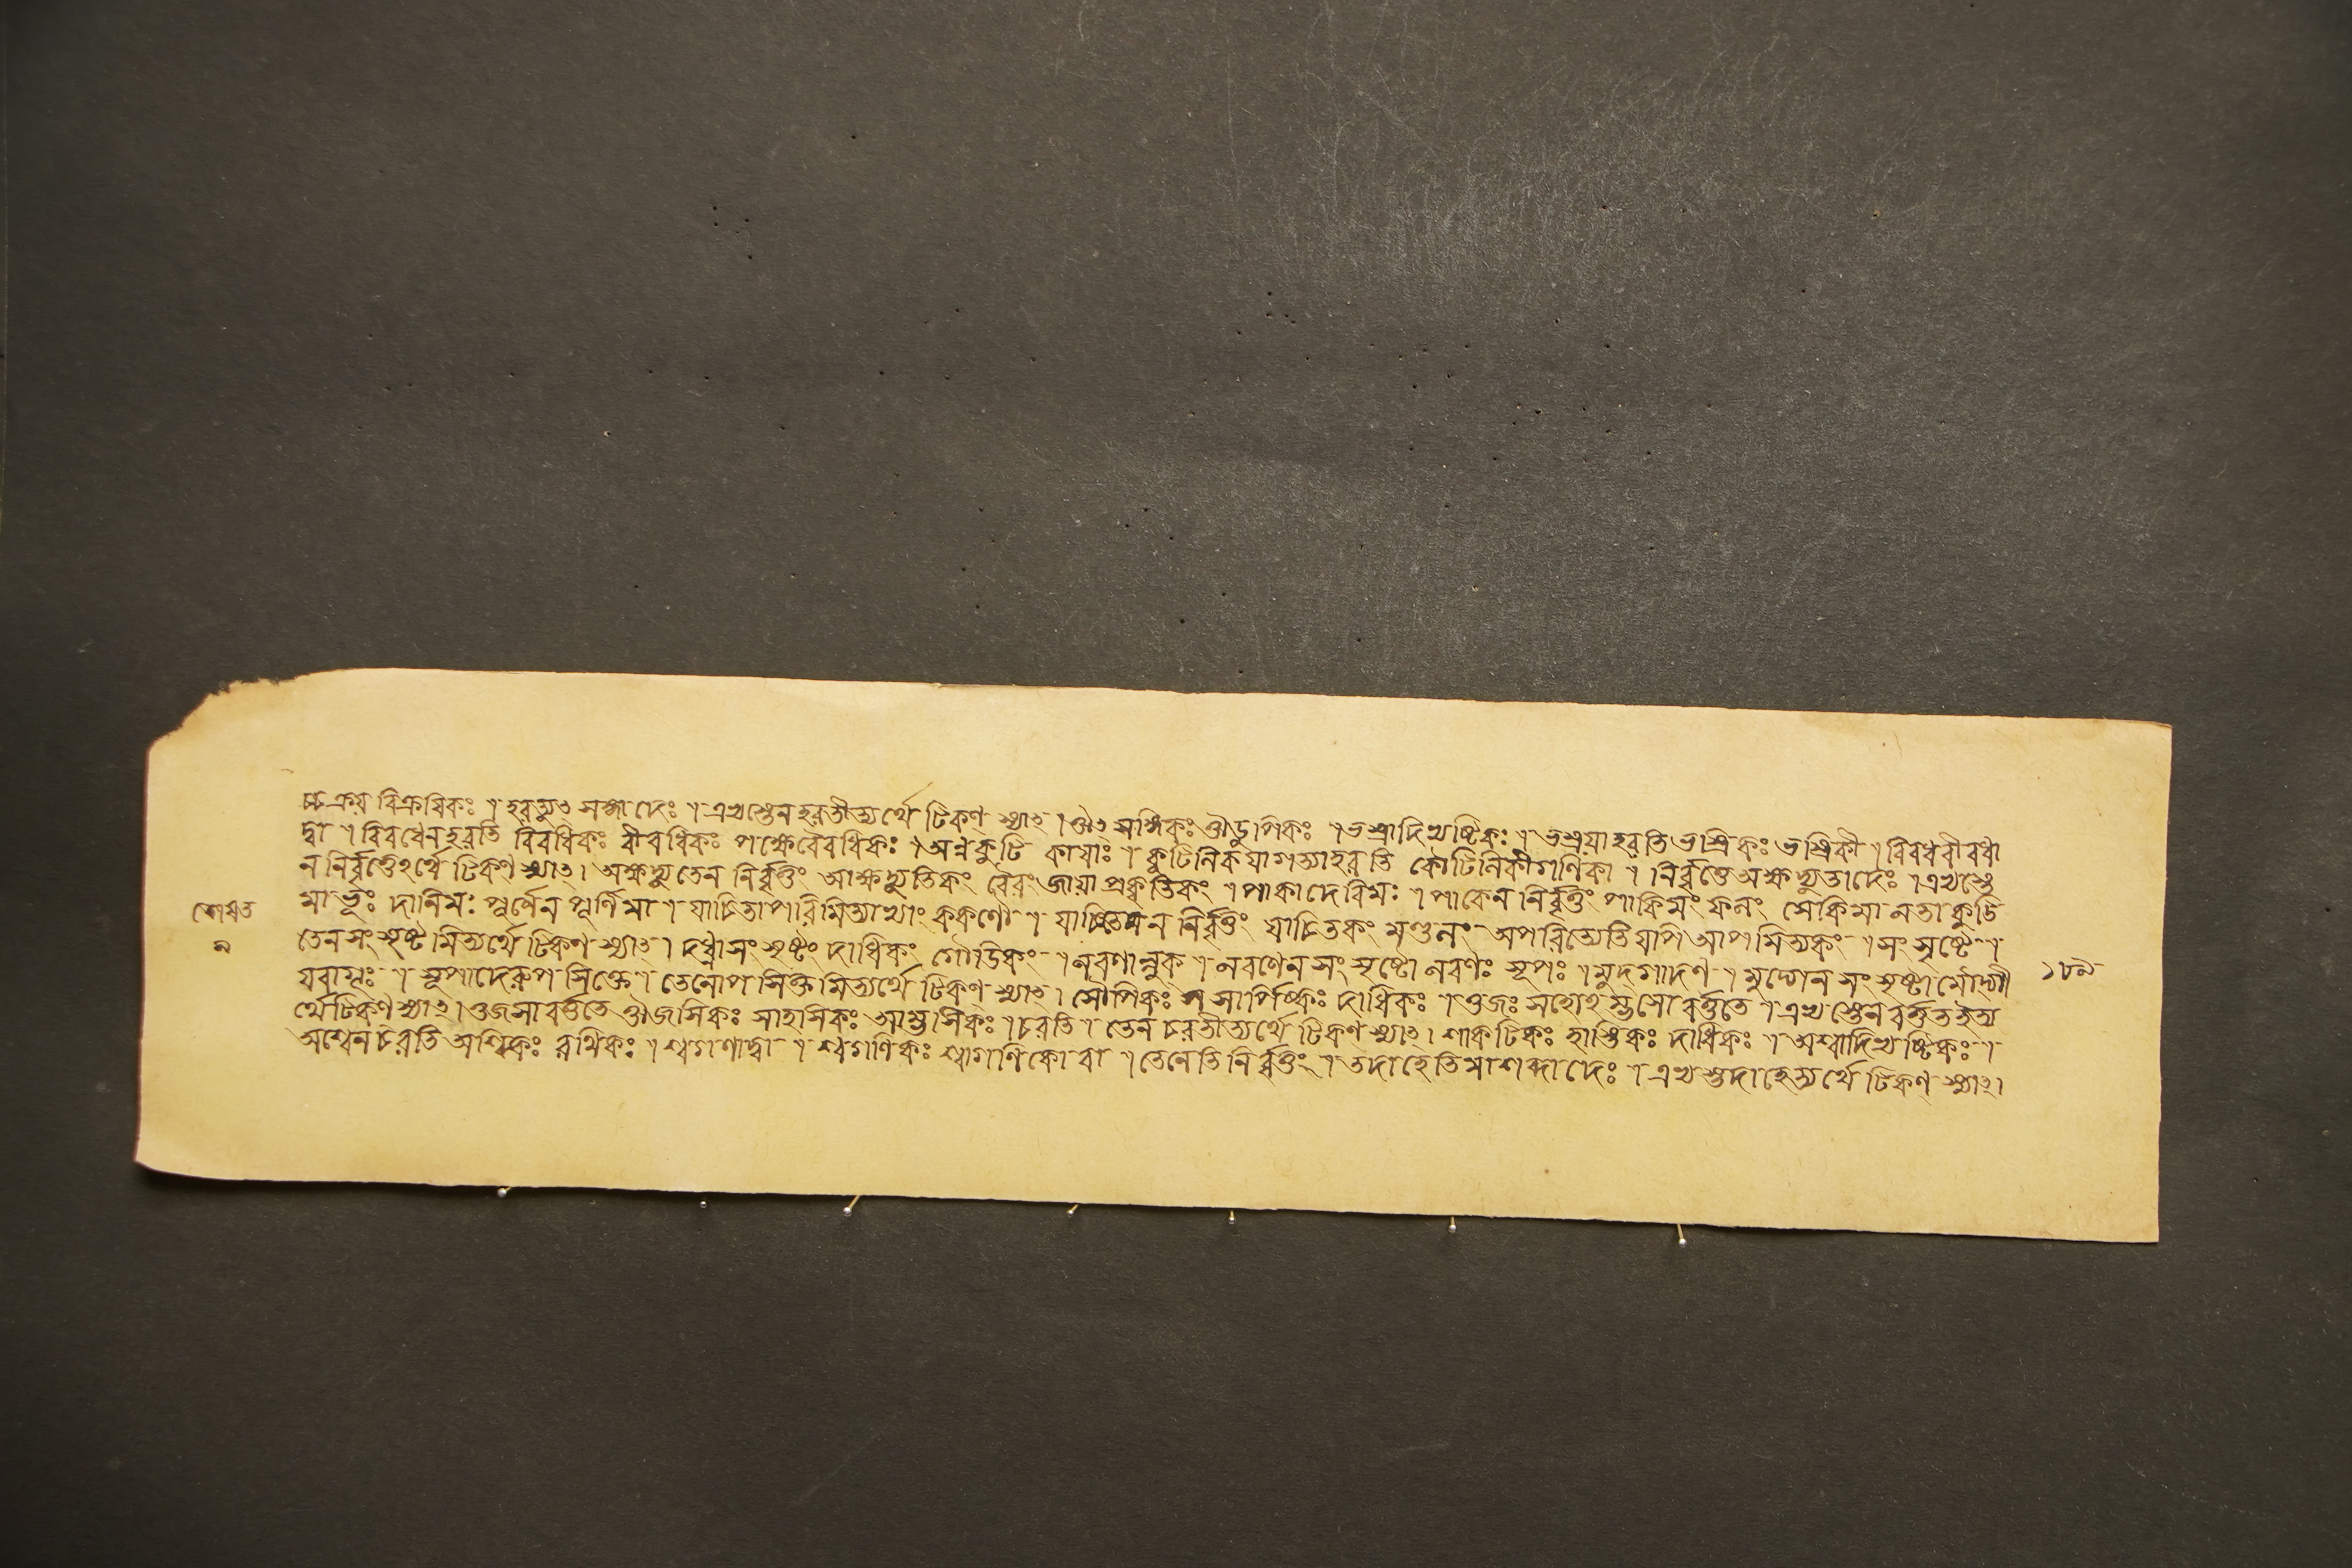 চ্চ ক্রয় বিক্রয়িকঃ । হরত্যুৎ সঙ্গাদেঃ । এখস্তেন হরতীত্যর্থে টিকণ্ স্যাৎ । ঔৎসঙ্গিকঃ ঔড়ুপিকঃ । ভস্ত্রাদিখষ্টিকঃ । ভস্ত্রয়া হরতি ভস্ত্রিকঃ ভস্ত্রিকী । বিবধবীবধা
দ্বা । বিবধেন হরতি বিবধিকঃ বীবধিকঃ পক্ষে বৈবধিকঃ । অন্নকুটি কায়াঃ । কুটিলিকয়া গত্যা হরতি কৌটিলিকী গণিকা । নির্ব্বৃত্তে অক্ষদ্যূতাদেঃ । এখস্তে
ন নির্বৃত্তেঽর্থে টিকণ্ স্যাৎ । অক্ষদ্যুতেন নির্ব্বৃত্তং আক্ষদ্যুতিকং বৈরং জায়া প্রকৃত্তিকং । পাকাদেরিমঃ । পাকেন নির্ব্বৃত্তং পাকিমং ফলং সেকিমা লতা কুট্টি
মা ভূঃ দানিমঃ পূর্ণেন পূর্ণিমা । যাচিতাপারিমিত্যাখ্যাং ককণৌ । যাচিতেন নির্ব্বৃত্তং যাচিতকং মণ্ডলং অপরিত্যেতি যপি আপমিত্যকং । সংসৃষ্টে ।
তেন সংসৃষ্টমিত্যর্থে টিকণ্ স্যাৎ । দধ্না সংসৃষ্টং দাধিকং গৌড়িকং । লবণান্লুক্ । লবণেন সংসৃষ্টো লবণঃ সূপঃ । মুদ্গাদণ্ । মুদ্গেন সংসৃষ্টা মৌদ্গী
যবাগূঃ । সূপাদেরুপসিক্তে । তেনোপসিক্তমিত্যর্থে টিকণ্ স্যাৎ । সৌপিকঃ সার্পিষ্কিঃ দাধিকঃ । ওজঃ সহোঽম্ভসো বর্ত্ততে । এখস্তেন বর্ত্তত ইত্য
র্থে টিকণ্ স্যাৎ । ওজসা বর্ত্ততে ঔজসিকঃ সাহসিকঃ আম্ভসিকঃ । চরতি । তেন চরতীত্যর্থে টিকণ্ স্যাৎ । শাকটিকঃ হাস্তিকঃ দাধিকঃ । অশ্বাদিখষ্টিকঃ ।
অশ্বেন চরতি অশ্বিকঃ রথিকঃ । শ্বগণাদ্বা । শ্বগণিকঃ শ্বাগণিকো বা । তেনেতি নির্ব্বৃত্তং । তদাহেতি মাশব্দাদেঃ । এখস্তদাহেত্যর্থে টিকণ্ স্যাৎ ।
১৮৯